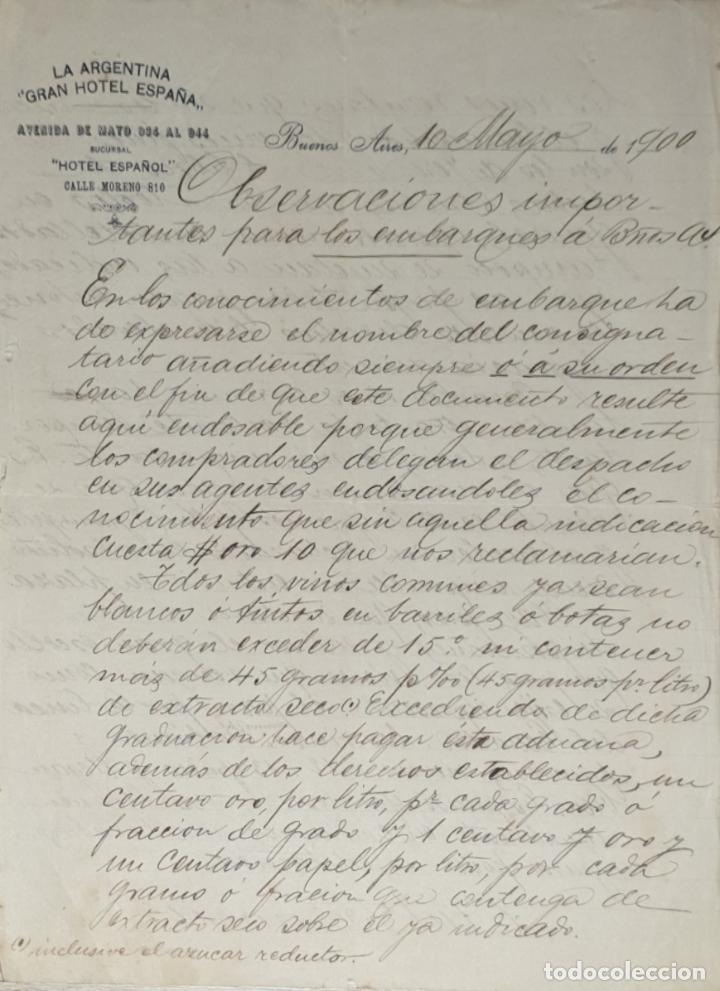 LA ARGENTINA
"GRAN HOTEL ESPAÑA„
AVENIDA DE MAYO 934 AL 944
SUCURSAL
"HOTEL ESPAÑOL"
CALLE MORENO 810
Buenos Aires, 10 Mayo de 1900
Observaciones impor-
tantes para los embarques á Bños As.
En los conocimientos de embarque ha
de expresarse el nombre del consigna-
tario añadiendo siempre ó á su orden
con el fin de que este documento resulte
aquí endosable porque generalmente
los compradores delegan el despacho
en sus agentes endosandoles el co-
nocimiento que sin aquella indicacion
cuesta $ oro 10 que nos reclamarian.
Todos los vinos comunes ya sean
blancos ó tintos en barriles ó botas no
deberán exceder de 15.º ni contener
más de 45 gramos p%00 (45 gramos pr. litro)
de extracto seco(*) Excediendo de dicha
graduacion hace pagar esta aduana,
además de los derechos establecidos, un
centavo oro, por litro, pr. cada grado ó
fraccion de grado y 1 centavo oro y
un centavo papel, por litro, por cada
gramo ó fracion que contenga de
extracto seco sobre el ya indicado.
(*) inclusive el azucar reductor.
todocoleccion